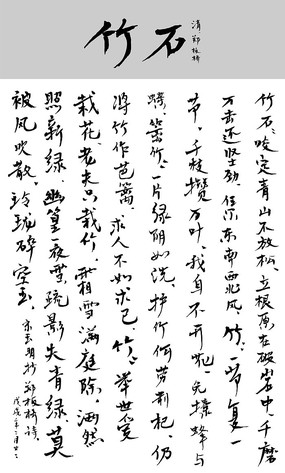 竹石
清 郑板桥
竹石：咬定青山不放松，立根原在破岩中，千磨
万击还坚劲，任尔东南西北风。竹：一节复一
节，千枝攒万叶，我自不开花，免撩蜂与
蝶。篱竹：一片绿阴如洗，护竹何劳荆杞，仍
将竹作笆篱，求人不如求己。竹：举世爱
栽花，老夫只栽竹，霜雪满庭除，洒然
照新绿。幽篁一夜雪，疏影失青绿，莫
被风吹散，玲珑碎空玉。
抄郑板桥诗。
戊戌年二月廿二